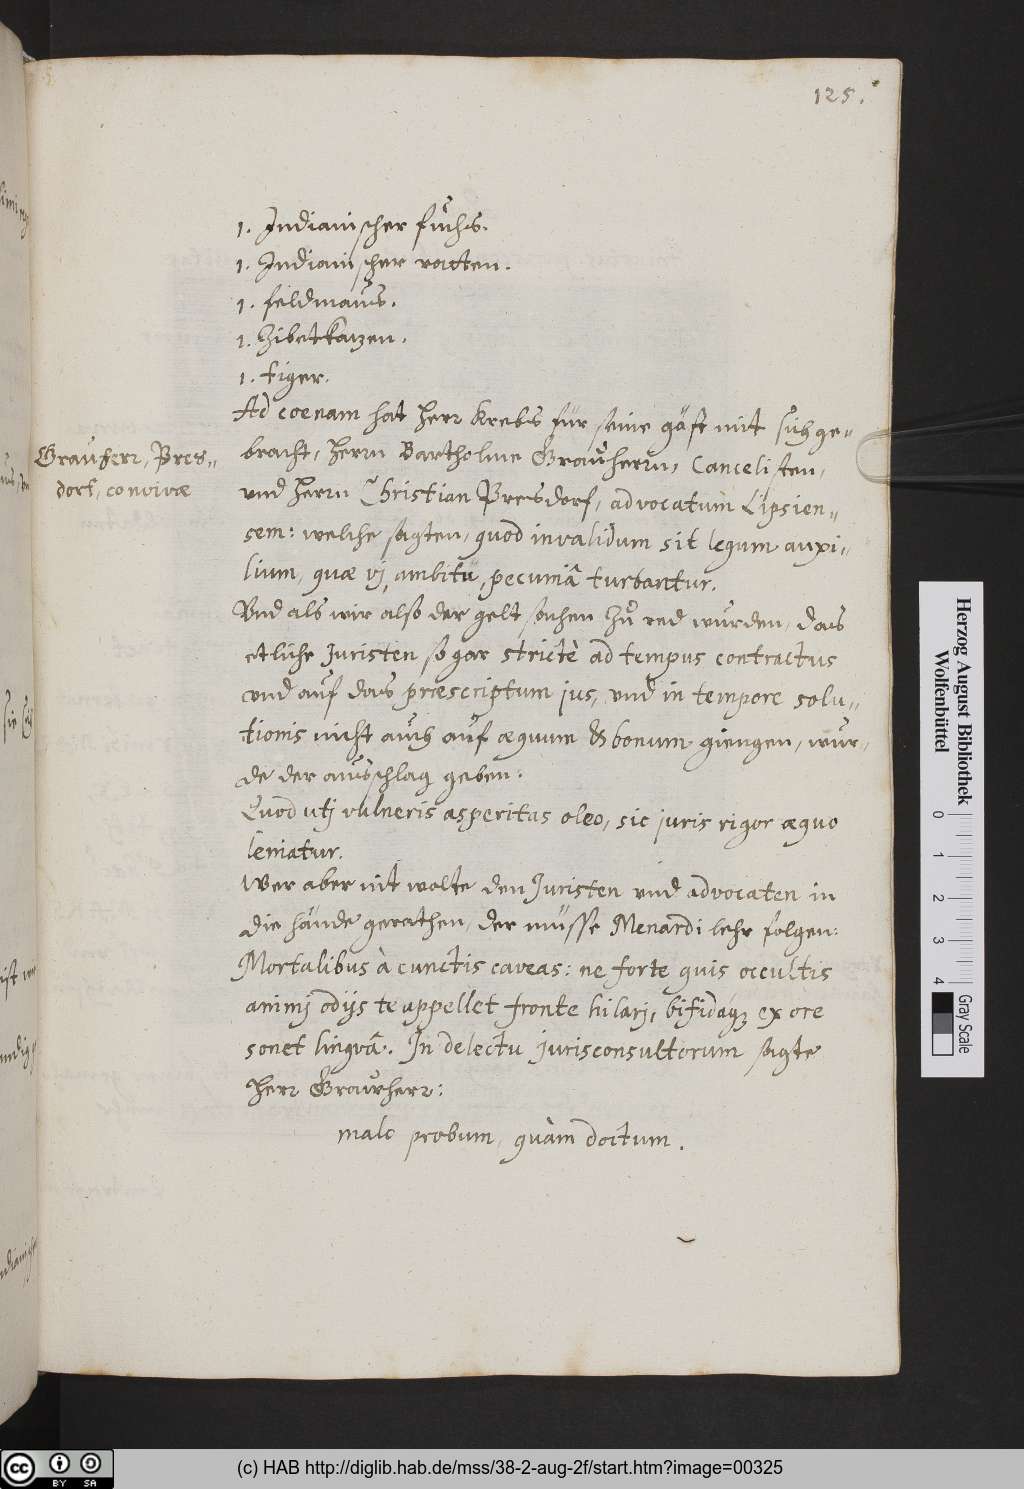 125.
1. Indianischer fuchs.
1. Indianischer ratten.
1. feldmaus.
1. Zibetkatzen.
1. tiger.
Ad coenam hat Herr Krebs für seine gäst mit sich ge=
Grauherr, Pres=
dorf, convivæ
bracht, Herrn Bartholme Grauherrn, Cancelisten,
und Herrn Christian Presdorf, advocatum Lipsien=
sem: welche sagten, quod invalidum sit legum auxi=
lium, quæ vj, ambitu, pecuniâ turbantur.
Und als wir also der gelt sachen zu red wurden, das
etliche Juristen so gar strictè ad tempus contractus
und auf das præscriptum jus, und in tempore solu=
tionis nicht auch auf æquum & bonum giengen, wur=
de der ausschlag geben:
Quod utj vulneris asperitas oleo, sic juris rigor æquo
leniatur.
Wer aber nit wolte den Juristen und advocaten in
die hände gerathen, der müsse Menardi lehr folgen:
Mortalibus à cunctis caveas: ne forte quis occultis
animj odijs te appellet fronte hilarj, bifidáq; ex ore
sonet linguâ. In delectu jurisconsultorum sagte
Herr Grauherr:
malo probum, quàm doctum.
Herzog August Bibliothek
Wolfenbüttel
0 1 2 3 4
Gray Scale
cc BY SA
(c) HAB http://diglib.hab.de/mss/38-2-aug-2f/start.htm?image=00325